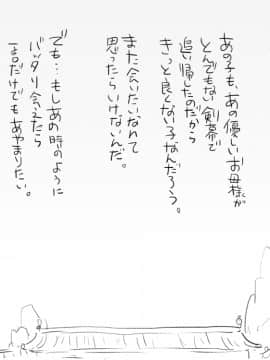 あの子も、あの優しいお母様が
とんでもない剣幕で
追い帰したのだから
きっと良くない子なんだろう。
また会いたいなんて
思ったらいけないんだ。
でも…もしあの時のように
バッタリ会えたら
一言だけでもあやまりたい。